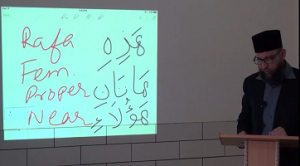 Rafa هَذِهِ
Fem.
Proper هَاتَانِ
Near هَؤُلَاءِ